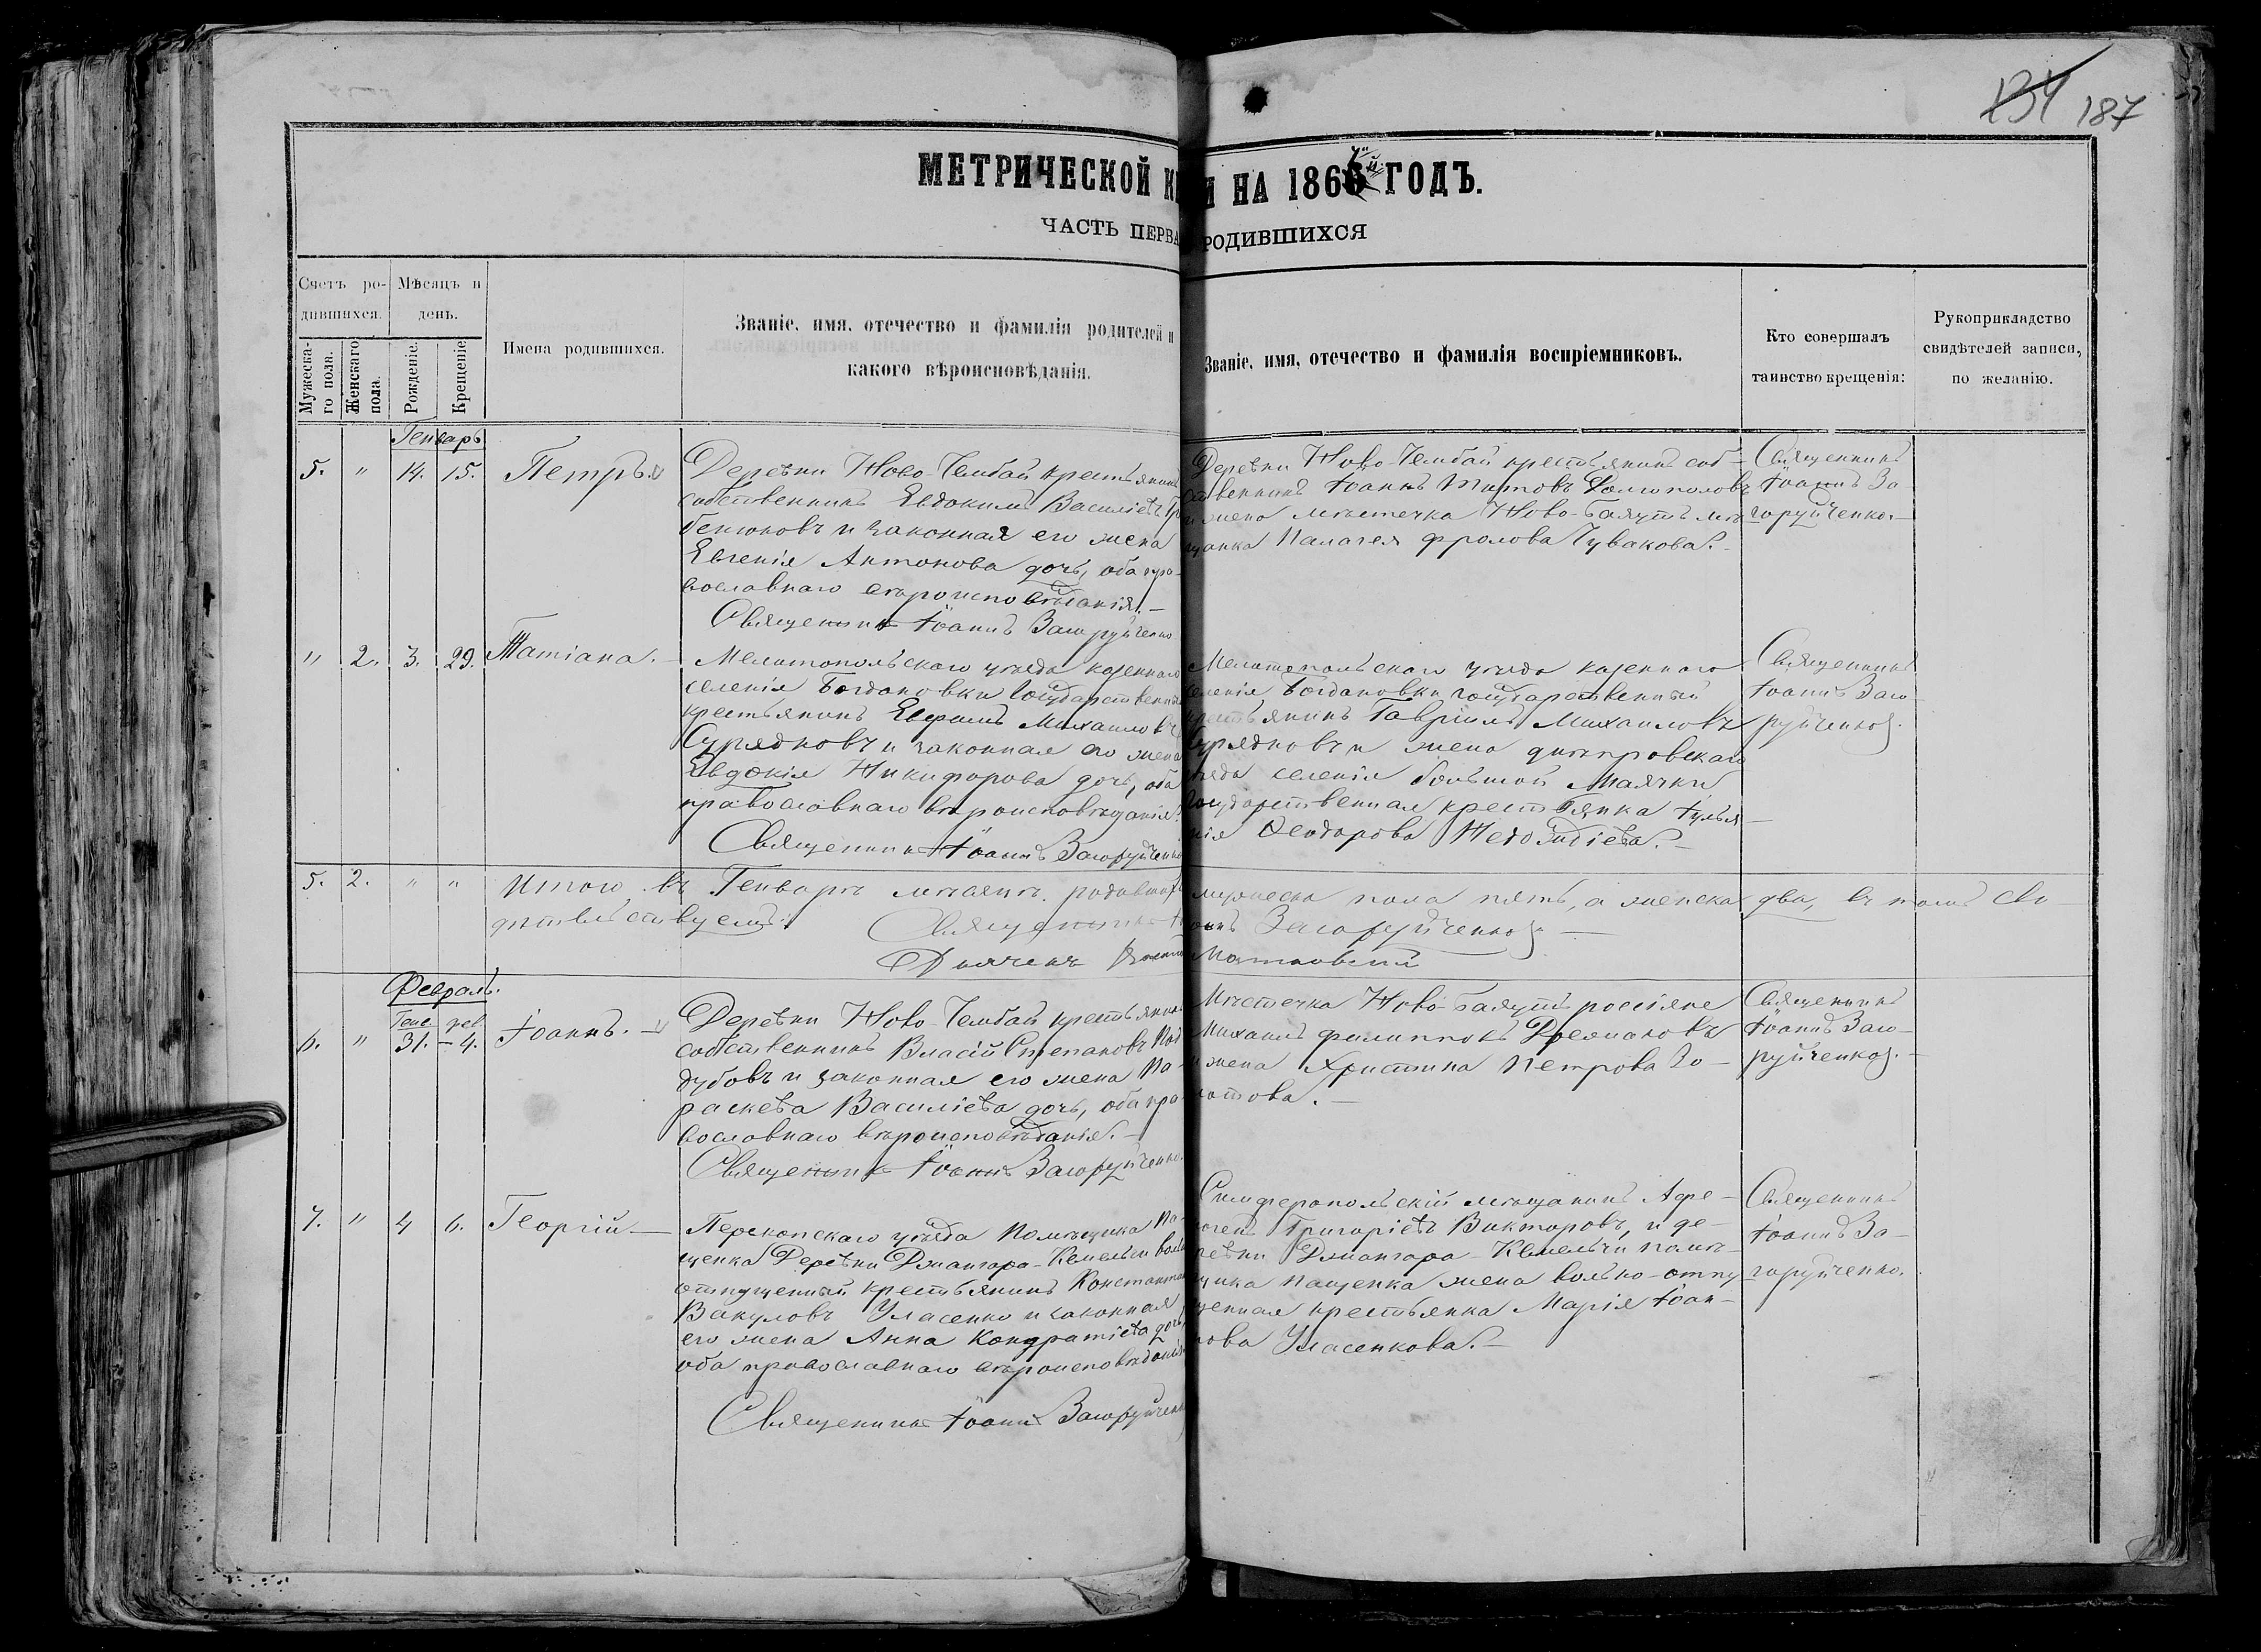 134 187
МЕТРИЧЕСКОЙ КНИ НА 1867й ГОДЪ.
ЧАСТЬ ПЕРВА РОДИВШИХСЯ
Счетъ ро-
дившихся.
Мужеска-
го пола.
Женскаго
пола.
Мѣсяцъ и
день.
Рожденіе.
Крещеніе
Имена родившихся.
Званіе, имя, отечество и фамилія родителей и
какого вѣроисповѣданія.
Званіе, имя, отечество и фамилія воспріемниковъ.
Кто совершалъ
таинство крещенія:
Рукоприкладство
свидѣтелей записи,
по желанію.
Генварь
5. " 14. 15. Петръ.
Деревни Ново-Чембай крестьянинъ
собственникъ Евдокимъ Василіевъ
и законная его жена
Евгенія Антонова дочь, оба пра-
вославнаго вѣроисповѣданія.-
Священникъ Іоаннъ Загоруйченко
Деревни Ново-Чембай крестьянинъ соб-
ственникъ Іоаннъ Титовъ
и жена мѣстечка Ново-Баяутъ мѣ-
щанка Палагея Фролова Чувакова.-
Священникъ
Іоаннъ За-
горуйченко.-
" 2. 3. 29. Татіана.-
Мелитопольскаго уѣзда казеннаго
селенія Богдановки государственный
крестьянинъ Евфимъ Михаиловъ
и законная его жена
Евдокія Никифорова дочь, оба
православнаго вѣроисповѣданія.
Священникъ Іоаннъ Загоруйченко
Мелитопольскаго уѣзда казеннаго
селенія Богдановки государственный
крестьянинъ Гавріилъ Михаиловъ
и жена днѣпровскаго
уѣзда селенія большой Маячки
государственная крестьянка Іулья-
нія Феодорова
Священникъ
Іоаннъ Заго-
руйченко.
5. 2. " " Итого въ Генварѣ мѣсяцѣ родившихъ мужеска пола пять, а женска два, въ томъ сви-
дѣтельствуемъ:
Священникъ Іоаннъ Загоруйченко.-
Дьячекъ
Февраль.
Генв. фев.
6. " 31. - 4. Іоаннъ.-
Деревни Ново-Чембай крестьянинъ
собственникъ Власій Степановъ Под
дубовъ и законная его жена Па-
раскева Василіева дочь, оба пра-
вославнаго вѣроисповѣданія.-
Священникъ Іоаннъ Загоруйченко.
Мѣстечка Ново-Баяутъ россіяне
Михаилъ Филипповъ
и жена Христина Петрова Зо-
лотова.-
Священникъ
Іоаннъ Заго-
руйченко.-
7. " 4 6. Георгій-
Перекопскаго уѣзда Помѣщика Па-
щенка Деревни Джангара-Кемельчи вольно
отпущенный крестьянинъ Константинъ
Вакуловъ Уласенко и законная
его жена Анна Кондратіева дочь,
оба православнаго вѣроисповѣданія
Священникъ Іоаннъ Загоруйченко
Симферопольскій мѣщанинъ Афи-
ногенъ Григоріевъ Викторовъ, и де-
ревни Джангара-Кемельчи помѣ-
щика Пащенка жена вольно-отпу-
щенная крестьянка Марія Іоан-
нова Уласенкова.-
Священникъ
Іоаннъ За-
горуйченко.